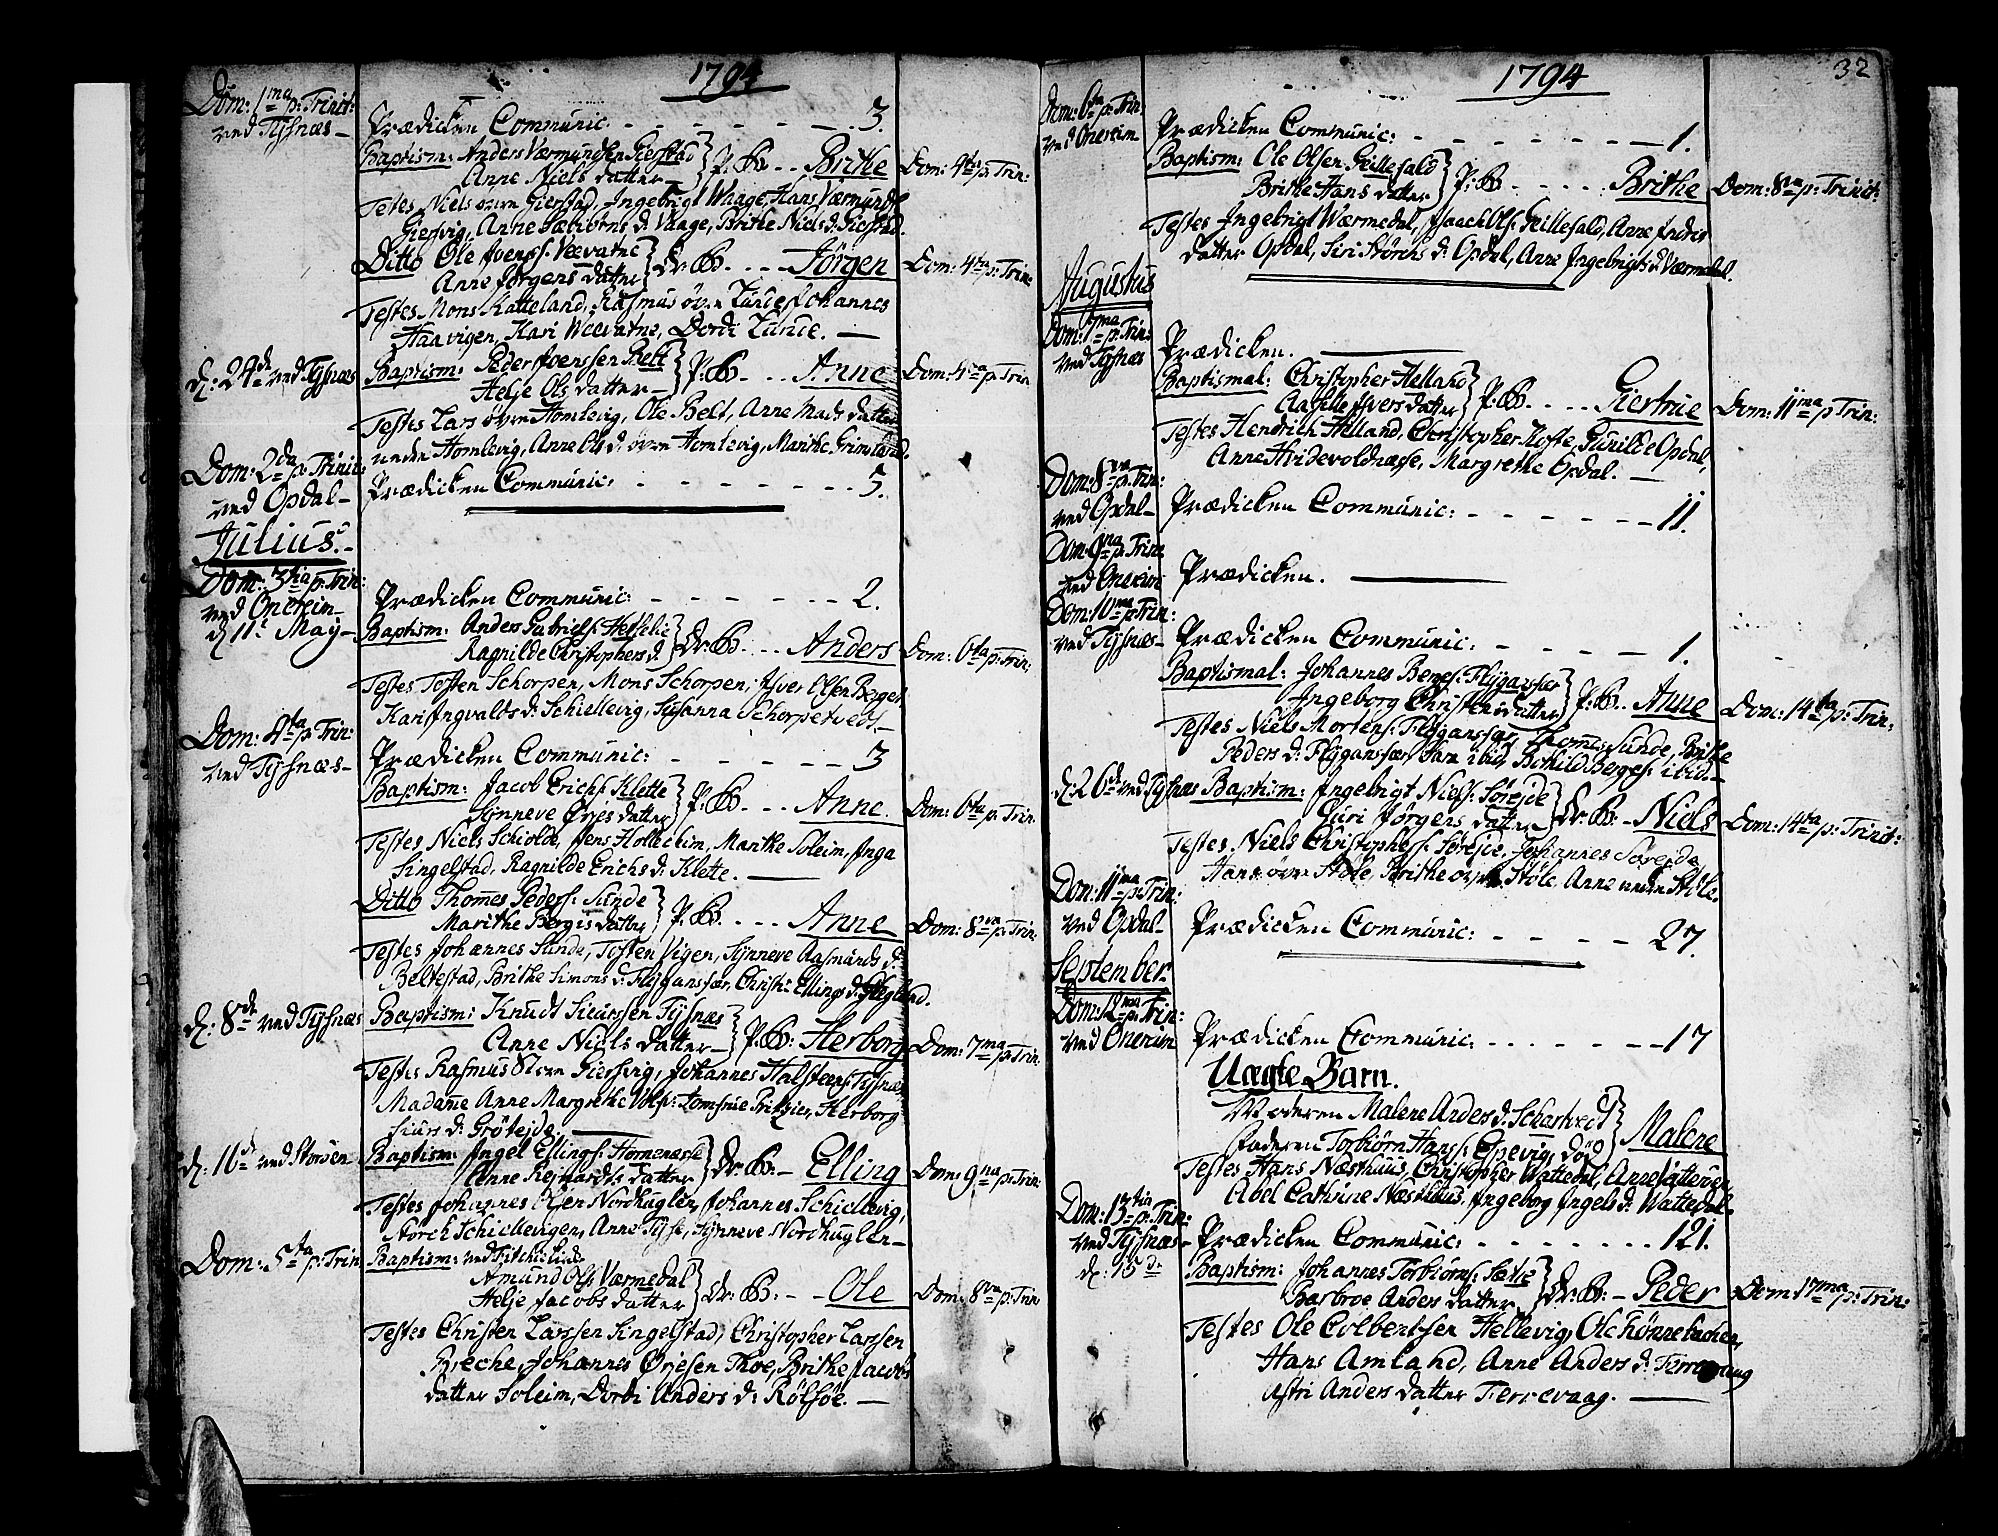 1794
Dom: 1ma p: Trinit:
ved Tysnæs
Prædicken Communic. 3.
Baptism: Anders Værmundsen Gierstad
Anne Niels datter
P: B. Brithe
Dom: 4ta p: Trin:
Testes Niels øvre Gierstad, Ingebrigt Waage, Hans Værmunds.
Giersvig, Anne d. Vaage, Brithe Niels d: Gierstad.
Ditto Ole Ivers: Vevatne
Anne Jørgens datter
Dr: B. Jørgen
Dom: 4ta p: Trin:
Testes Mons Katteland, Rasmus øvre Lunde, Johannes
Haavigen, Kari Wevatne, Dordi Lunde.
d: 24de ved Tysnæs
Baptism: Peder Ivenssen Belt
Helje Ols datter
P: B. Anne
Dom: 4ta p: Trin
Testes Lars øvre Homlevig, Ole Belt, Anne Mads datter
neden Homlevig, Anne Ols d: øvre Homlevig, Marithe Grimsland.
Dom: 2da p: Trinit:
ved Opdal
Prædicken Communic: 5.
Julius.
Dom: 3tia p: Trin:
ved Onereim
Prædicken Communic: 2.
d 11t May
Baptism: Anders Gabriels:
Ragnilde Christophers d:
Dr: B. Anders
Dom: 6ta p: Trin:
Testes Tosten Schorpen, Mons Schorpen, Iver Olsen Berge,
Kari Ingvalds d: Schiellevig, Susanna Schorpetvedt.
Dom: 4ta p: Trin:
ved Tysnæs
Prædicken Communic: 3
Baptism: Jacob Erichs: Klette
Synneve Ørjes datter
P: B. Anne.
Dom: 6ta p: Trin:
Testes Niels Schiolde, Jens Holleckim, Marithe Soleim, Inga
Singelstad, Ragnilde Erichs d: Klette.
Ditto Thomes Peders: Sunde
Marithe Bergis datter
P: B. Anne
Dom: 8va p: Trin:
Testes Johannes Sunde, Tosten Vigen, Synneve Aasmunds d:
Beltestad, Brithe Simons d: Flygansfær, Christi: Ellings d:
d: 8de ved Tysnæs
Baptism: Knudt Siurssen Tysnæs
Anne Niels datter
P: B: Herborg
Dom: 7ma p: Trin:
Testes Rasmus Giersvig, Johannes Halsteens: Tysnæs
Madame Anne Margrethe Jomfrue Fritzier, Herborg
Siurs d: Grøtejde.
d: 16de ved Storøen
Baptism: Ingel Ellings: Hornenæsse
Anne Rejnardts datter
Dr: B: Elling
Dom: 9na p: Trin:
Testes Johannes Olsen Nordhuglen, Johannes Schiellevig,
Storck Schiellevigen, Anne Tysse, Synneve Nordhuglen
Dom: 5ta p: Trin
Baptism: ved
Amund Ols: Værmedal
Helje Jacobs datter
Dr: B: Ole
Dom: 8va p: Trin
Testes Christen Larssen Singelstad, Christopher Larssen
Breche, Johannes Ørjesen Thoe, Brithe Jacobs
datter Soleim, Dordi Anders d: Rølsøe.
1794
32
Dom: 6ta p: Trin:
ved Onereim
Prædicken Communic: 1.
Baptism: Ole Olsen Gillesald
Brithe Hans datter
P: B. Brithe
Dom: 8va p: Trinit:
Testes Ingebrigt Wærmedal, Isaach Ols: Gillesald, Anne Endres
datter Opdal, Siri Storchs d: Opdal, Anne Ingebrigts d: Værmedal.
Augustus
Dom: 7ma p: Trin:
ved Tysnæs
Prædicken.
Baptismal: Christopher Helland
Aaselle Ivers datter
P: B. Giertrue
Dom: 11ma p: Trin:
Testes Hendrich Helland, Christopher Hofte, Gunilde Opdal,
Anne Hvidevoldnæsse, Margrethe Opdal.
Dom: 8va p: Trin:
ved Opdal
Prædicken Communic: 11.
Dom: 9na p: Trin:
ved Onereim
Prædicken.
Dom: 10ma p: Trin:
ved Tysnæs
Prædicken Communic: 1.
Baptismal: Johannes Berges: Flygansfær
Ingeborg Christens datter
P: B. Anne
Dom: 14ta p: Trin:
Testes Niels Mortens: Flygansfær, Thomes Sunde, Brithe
Peders d: Flygansfær, Sara ibid, Bothild Berges: ibid.
d: 26de ved Tysnæs
Baptism: Ingebrigt Niels: Sørejde
Guri Jørgens datter
Dr: B: Niels
Dom: 14ta p: Trinit:
Testes Niels Christophers: Sørejde, Johannes Sørejde,
Hans øvre Støle, Brithe øvre Støle, Anne neden Støle.
Dom: 11ma p: Trin:
ved Opdal
Prædicken Communic: 27.
September.
Dom: 12ma p: Trin:
ved Onereim
Prædicken Communic: 17
Uægte Barn.
Moderen Malene Anders d: Schartvedt
Faderen Torbiørn Hans: Espevig, død
Malene
Testes Hans Næsthuus, Christopher Wattedal, Anne Sætteven,
Abel Cathrine Næsthuus, Ingeborg Ingels d: Wattedal.
Dom: 13tia p: Trin:
ved Tysnæs
Prædicken Communic: 121.
d: 15de
Baptism: Johannes Torbiørns: Sætre
Barbroe Anders datter
Dr: B: Peder
Dom 17ma p: Trin:
Testes Ole Colbentsen Hellevig, Ole Hønnebachen,
Hans Amland, Anne Anders d: Terrevaag
Astri Anders datter Terrevaag.